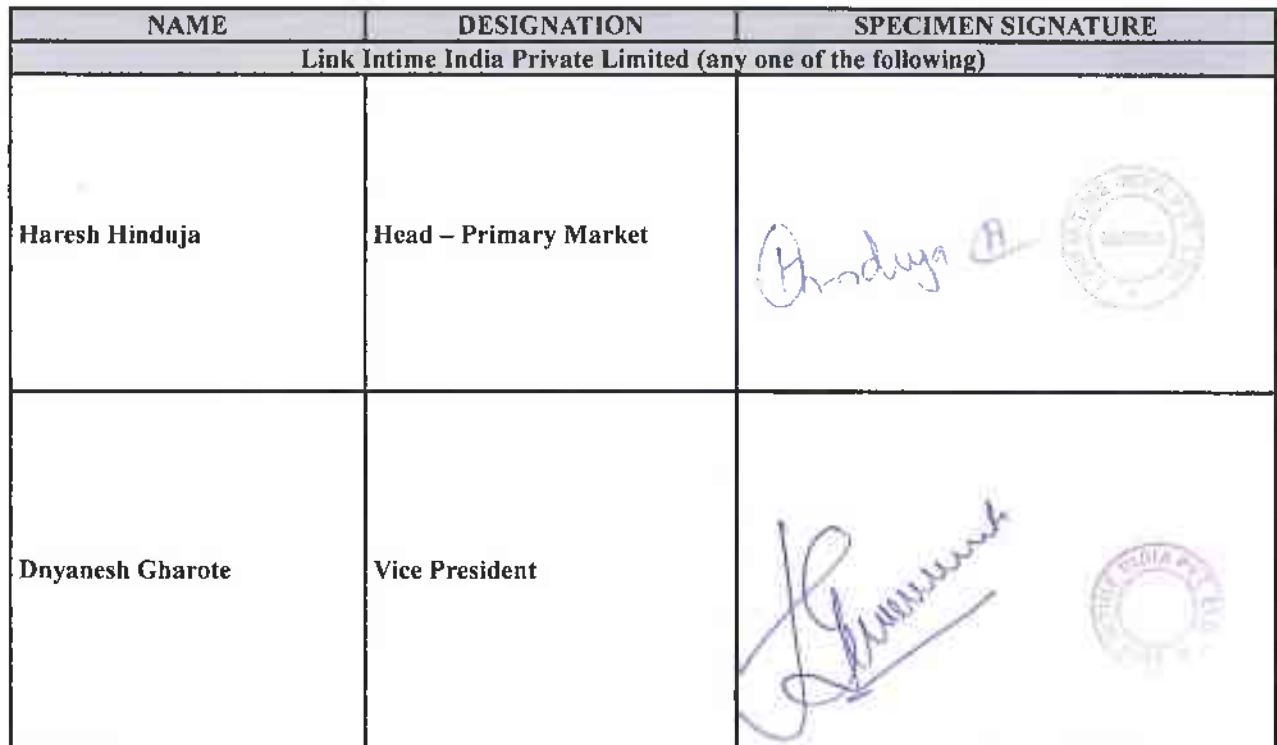 NAME DESIGNATION SPECIMEN SIGNATURE
Link Intime India Private Limited (any one of the following)
Haresh Hinduja Head – Primary Market Hinduja H
Dnyanesh Gharote Vice President